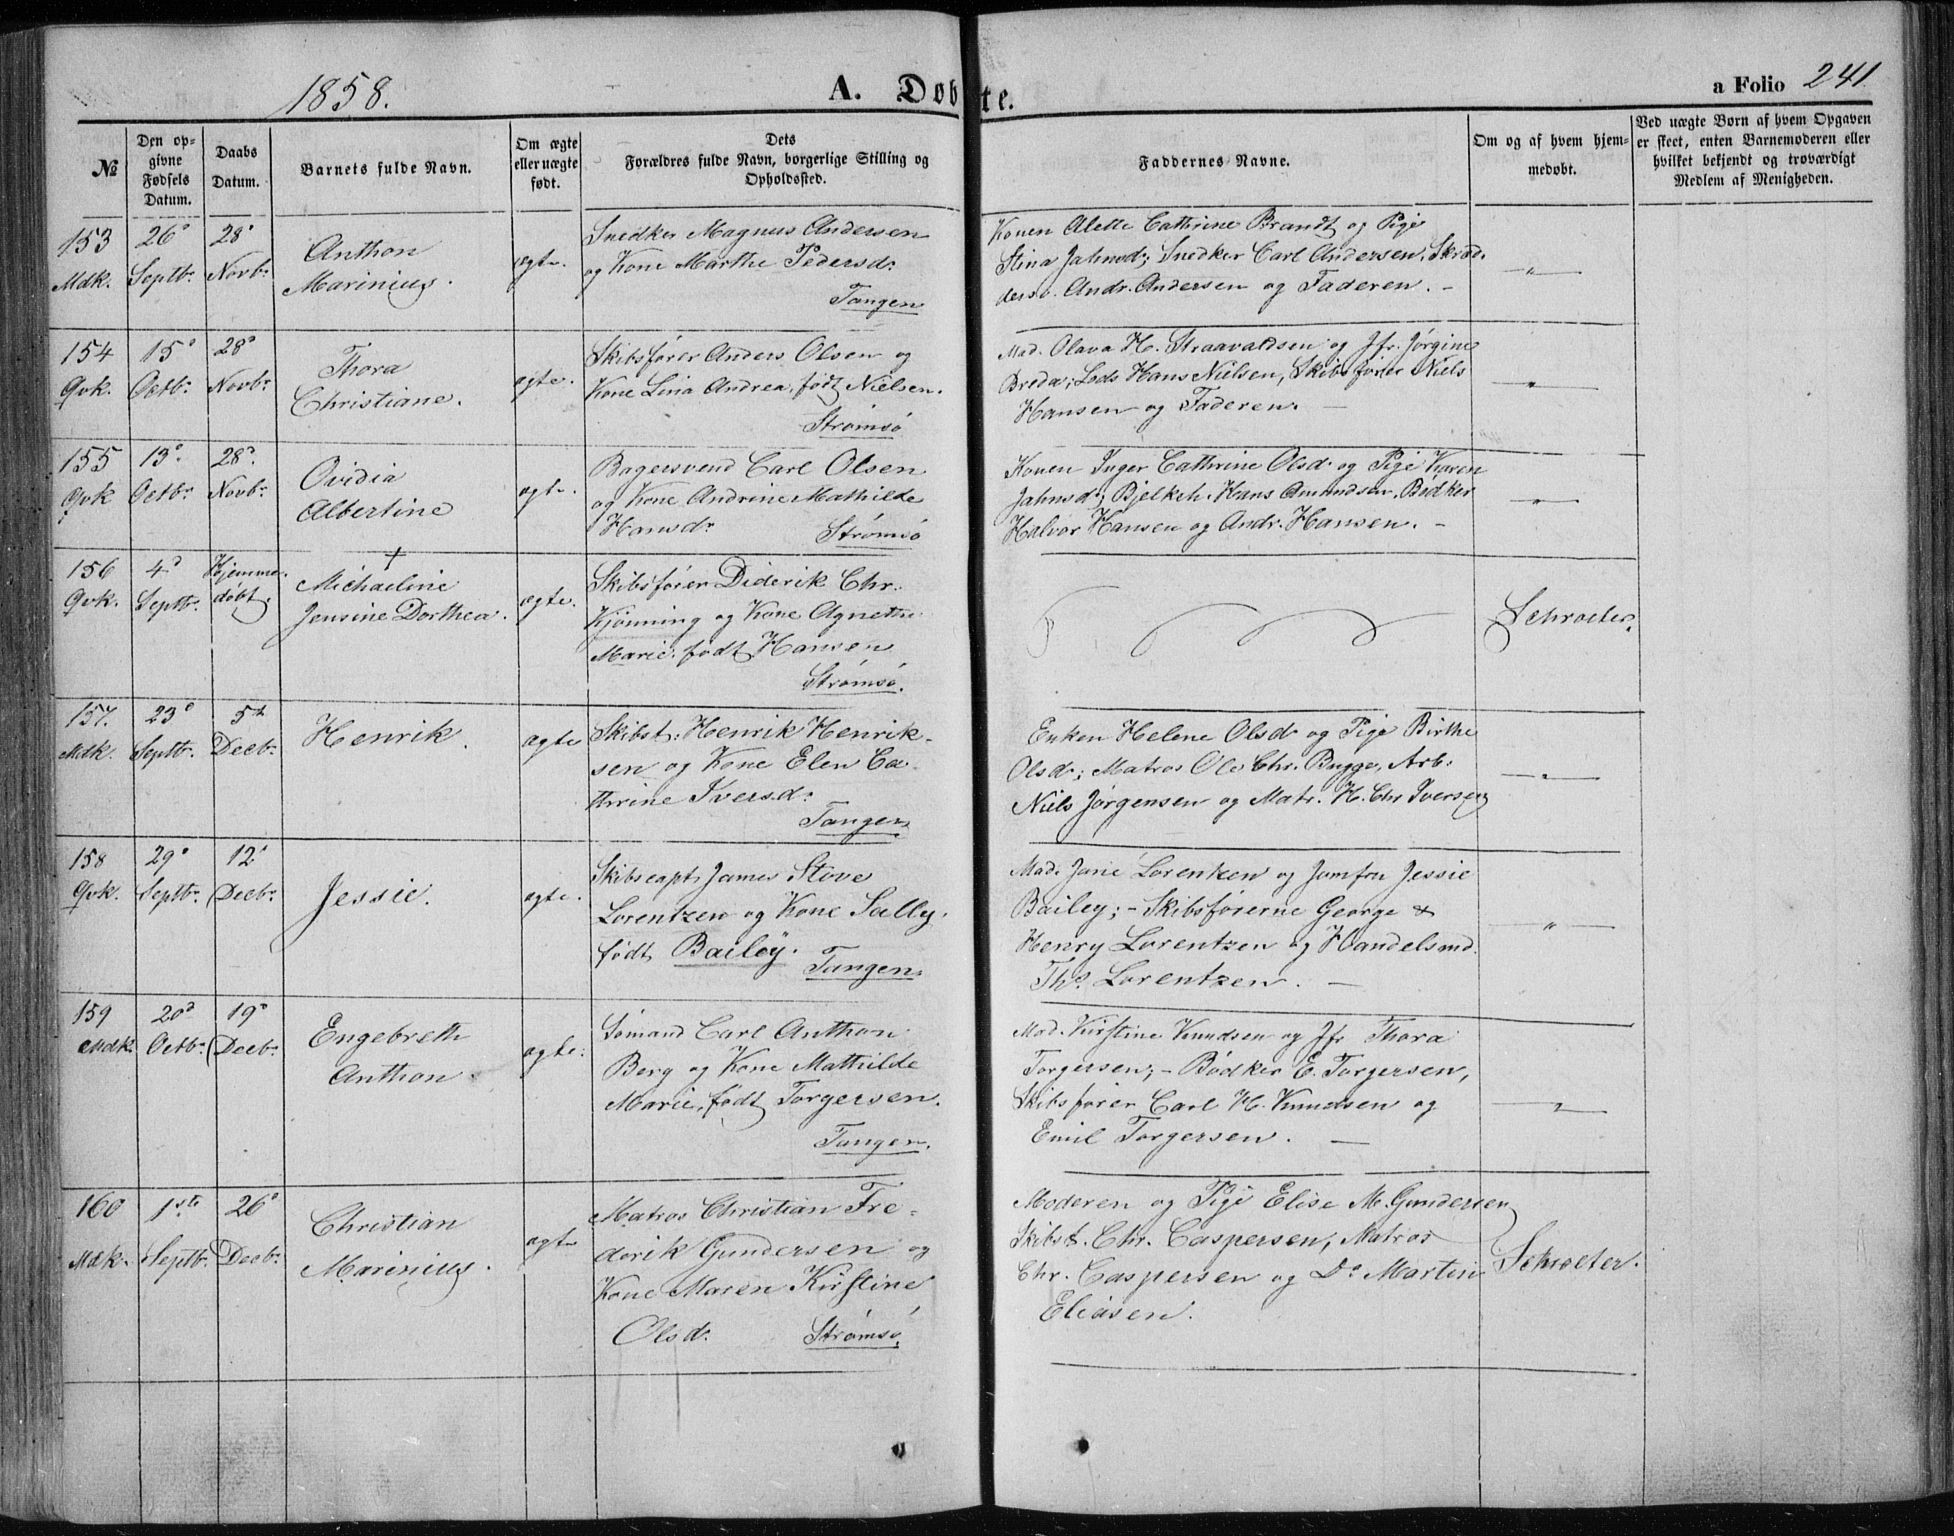 1858.
A. Døbte.
a Folio 241
№
Den opgivne Fødsels Datum.
Daabs Datum.
Barnets fulde Navn.
Om ægte eller uægte født.
Dets Forældres fulde Navn, borgerlige Stilling og Opholdssted.
Faddernes Navne.
Om og af hvem hjemmedøbt.
Ved uægte Børn af hvem Opgaven er skeet, enten Barnemoderen eller hvilket bekjendt og troværdigt Medlem af Menigheden.
153
Mdk.
26d
Septbr.
28d
Novbr.
Anthon
Marinius.
ægte.
Snedker Magnus Andersen
og Kone Marthe Pedersd:
Tangen
Konen Alette Cathrine Brandt og Pige
Stina Jahnsd; Snedker Carl Andersen, Skræd-
ders. Andr. Andersen og Faderen. -
"
154
Qvk.
15d
Octbr.
28d
Novbr.
Thora
Christiane.
ægte.
Skibsfører Anders Olsen og
Kone Lina Andrea, født Nielsen.
Strømsø
Mad. Olava H. Straavaldsen og Jfr. Jørgine
Breda; Lods Hans Nielsen, Skibsfører Niels
Hansen og Faderen. -
"
155
Qvk
13d.
Octbr.
28d.
Novbr.
Ovidia
Albertine
ægte.
Bagersvend Carl Olsen
og Kone Andrine Mathilde
Hansdr
Strømsø
Konen Inger Cathrine Olsdr og Pige Karen
Jahnsd; Bjelkeh. Hans Amundsen, Bødker
Halvor Hansen og Andr. Hansen. -
"
156
Qvk.
4d
Septbr.
Hjemme-
døbt.
+
Michaeline
Jensine Dorthea.
ægte.
Skibsfører Diderik Chr.
Kjønning og Kone Agnethe
Marie, født Hansen
Strømsø.
Schroeter.
157.
Mdk.
23d
Septbr.
5t
Decbr.
Henrik.
ægte
Skibst: Henrik Henrik-
sen og Kone Elen Ca-
thrine Iversd:
Tangen
Enken Helene Olsdr og Pige Birthe
Olsdr; Matros Ole Chr. Bugge, Arb:
Niels Jørgensen og Matr. H. Chr Iversen
"
158
Qvk.
29d
Septbr.
12d
Decbr.
Jessie.
ægte.
Skibscapt. James Stove
Lorentzen og Kone Sally,
født Bailey.
Tangen.
Mad. Janie Lorentzen og Jomfru Jessie
Bailey; - Skibsførerne George &
Henry Lorentzen og Handelsmd.
Ths. Lorentzen. -
"
159
Mdk.
20d
Octbr.
19d
Decbr.
Engebreth
Anthon.
ægte.
Sømand Carl Anthon
Berg og Kone Mathilde
Marie, født Torgersen.
Tangen.
Mad. Kirstine Knudsen og Jfr Thora
Torgersen; - Bødker E. Torgersen,
Skibsfører Carl H. Knudsen og
Emil Torgersen. -
"
160
Mdk.
1ste
Septbr.
26d
Decbr.
Christian
Marinius.
ægte
Matros Christian Fre-
derik Gundersen og
Kone Maren Kirstine
Olsdr.
Strømsø.
Moderen og Pige Elise M. Gundersen
Skibst. Chr. Caspersen, Matros
Chr. Caspersen og Do Martin
Eliasen.
Schroeter.